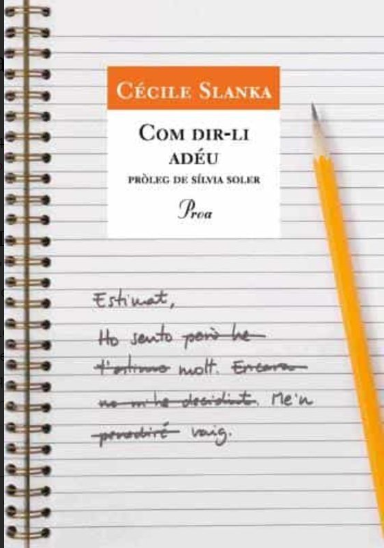 CÉCILE SLANKA
COM DIR-LI
ADÉU
PRÒLEG DE SÍLVIA SOLER
Proa
Estimat,
Ho sento però he
t'estimo molt. Encara
no m'he decidint. Me'n
penediré vaig.